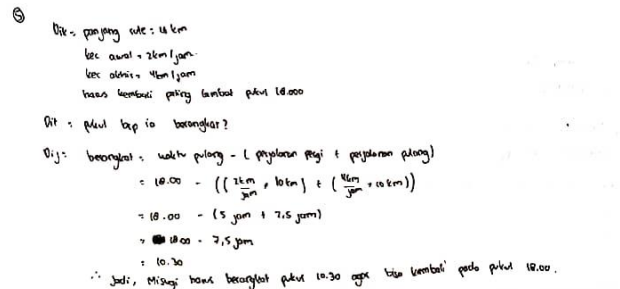 ⑤
Dik = panjang rute : 10 km
kec awal = 2km/jam
kec akhir = 4km/jam
harus kembali paling lambat pukul 18.000
Dit : pukul brp ia berangkat?
Dij : berangkat = waktu pulang - ( perjalanan pergi + perjalanan pulang)
= 18.00 - ((2km/jam, 10 km) + (4km/jam, 10 km))
= 18.00 - (5 jam + 2,5 jam)
= 18.00 - 7,5 jam
= 10.30
∴ Jadi, Misugi harus berangkat pukul 10.30 agar bisa kembali pada pukul 18.00.